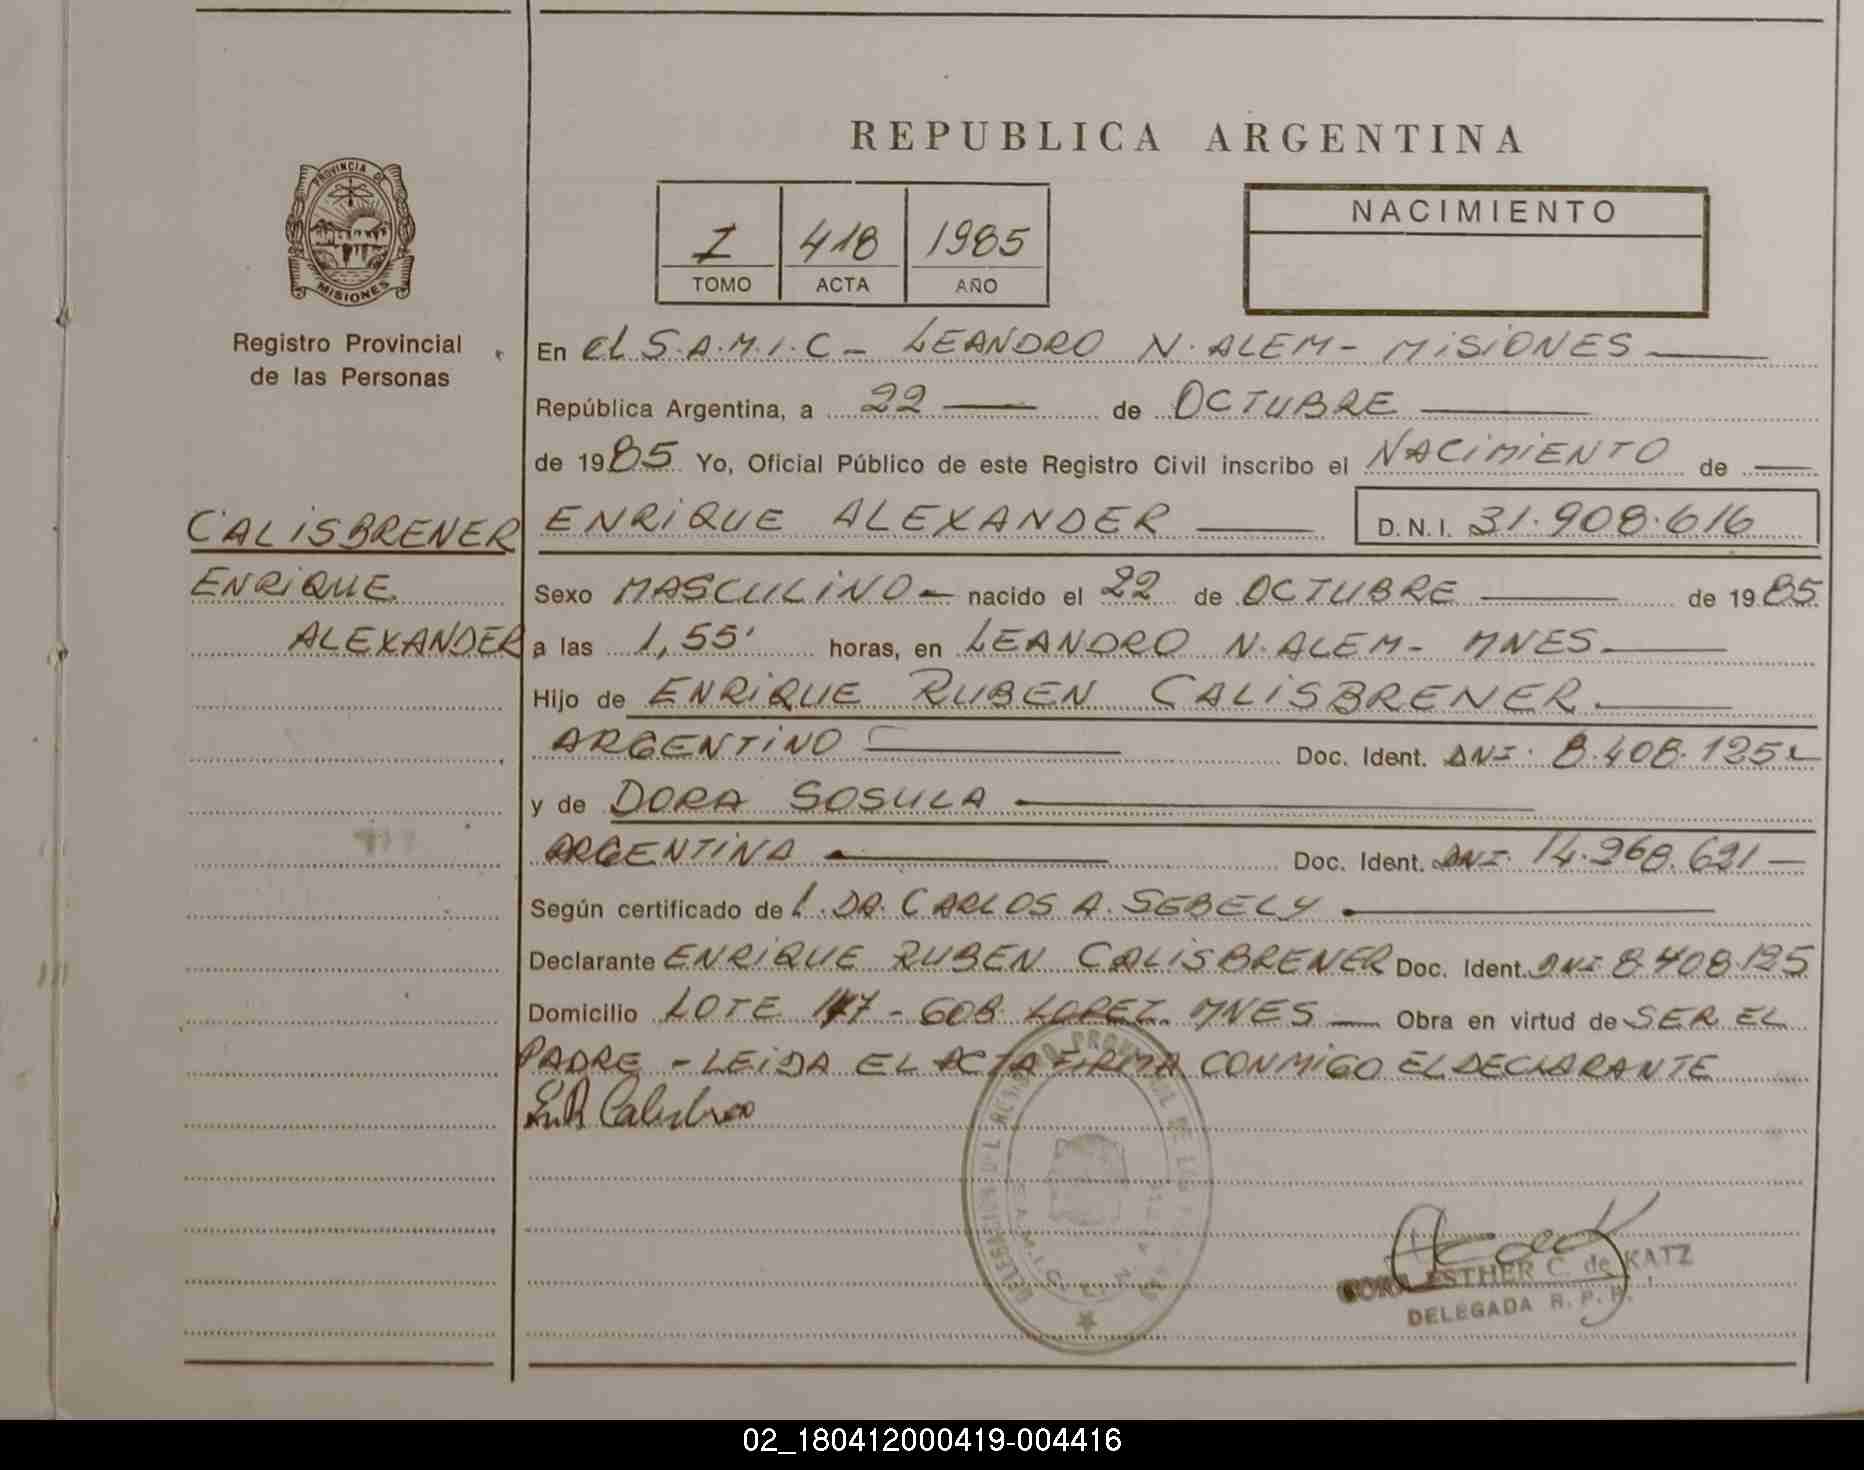 REPUBLICA ARGENTINA
PROVINCIA DE
MISIONES
Registro Provincial
de las Personas
1 418 1985
TOMO ACTA AÑO
NACIMIENTO
En el S.A.M.I.C - LEANDRO N. ALEM - MISIONES
República Argentina, a 22 de OCTUBRE
de 1985 Yo, Oficial Público de este Registro Civil inscribo el NACIMIENTO de
CALISBRENER ENRIQUE ALEXANDER D.N.I. 31.908.616
ENRIQUE Sexo MASCULINO - nacido el 22 de OCTUBRE de 1985
ALEXANDER a las 1,55' horas, en LEANDRO N. ALEM - MNES
Hijo de ENRIQUE RUBEN CALISBRENER
ARGENTINO Doc. Ident. DNI. 8.408.195
y de DORA SOSULA
ARGENTINA Doc. Ident. DNI. 14.268.621
Según certificado de CARLOS A. SEBELY
Declarante ENRIQUE RUBEN CALISBRENER Doc. Ident. DNI 8.408.195
Domicilio LOTE - GOB. LOPEZ. MNES Obra en virtud de SER EL
PADRE - LEIDA EL ACTA FIRMA CONMIGO EL DECLARANTE
ESTHER C. de KATZ
DELEGADA R. P. P.
02_180412000419-004416